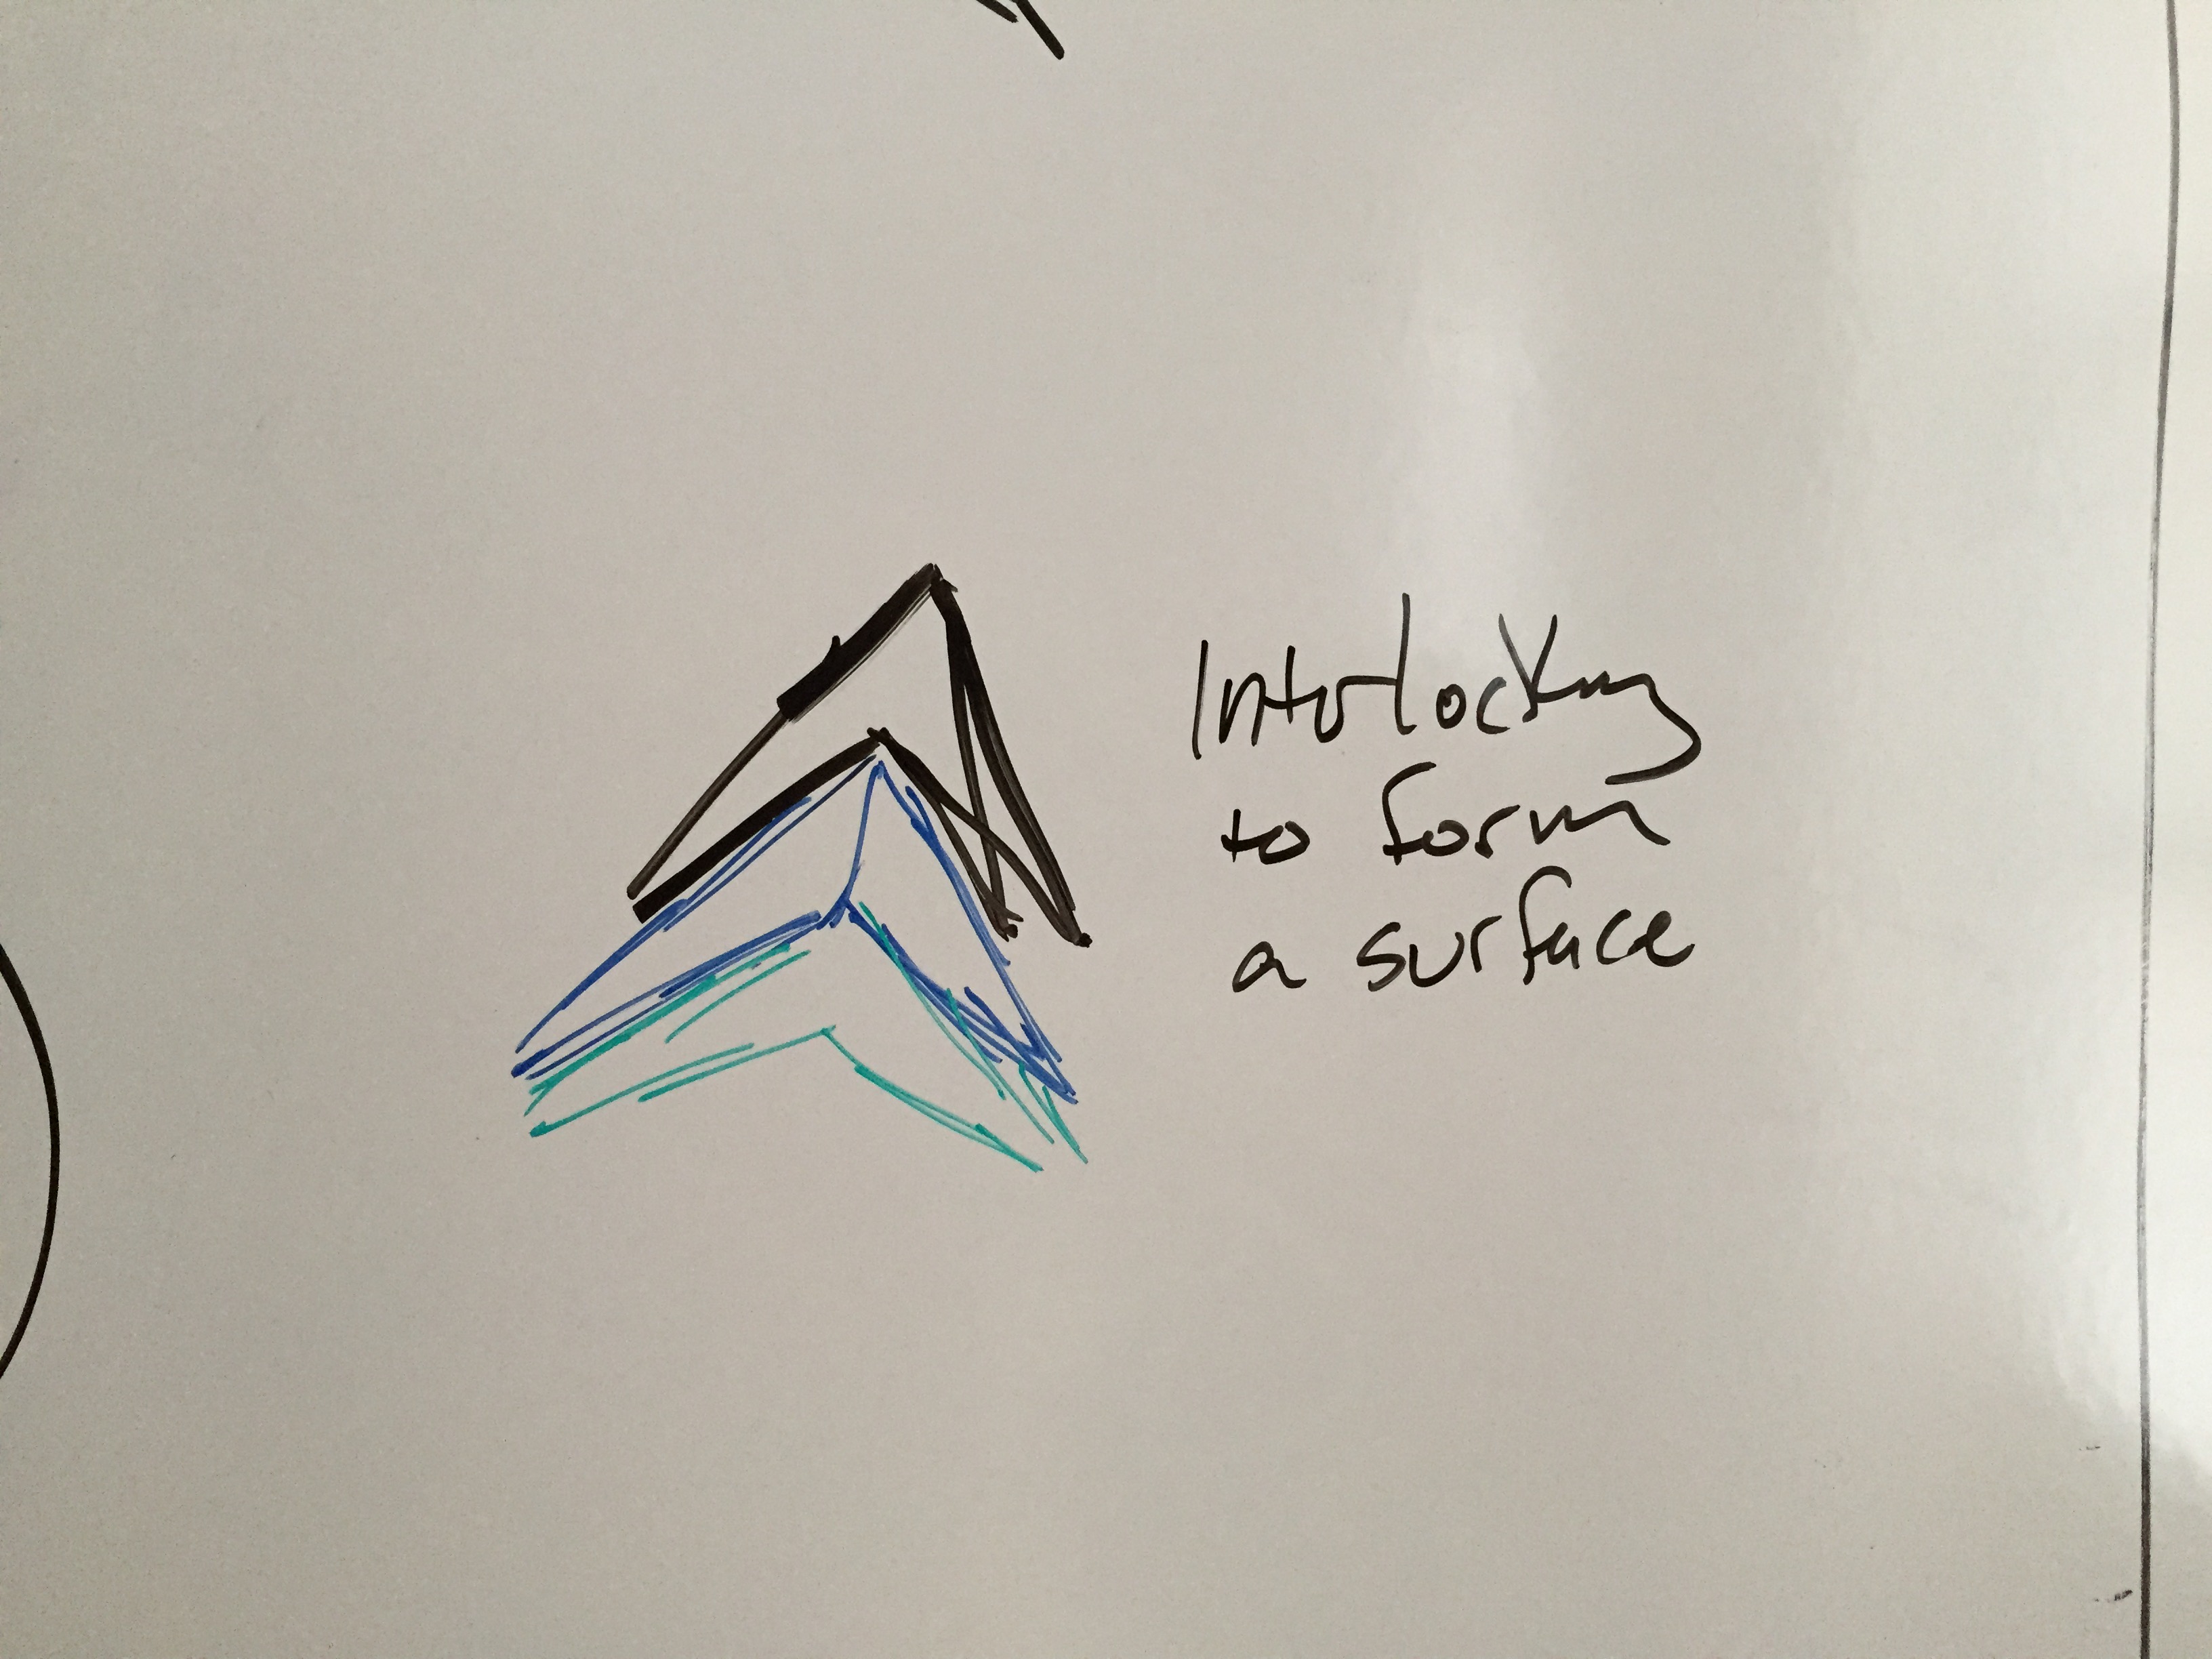 Interlocking
to form
a surface